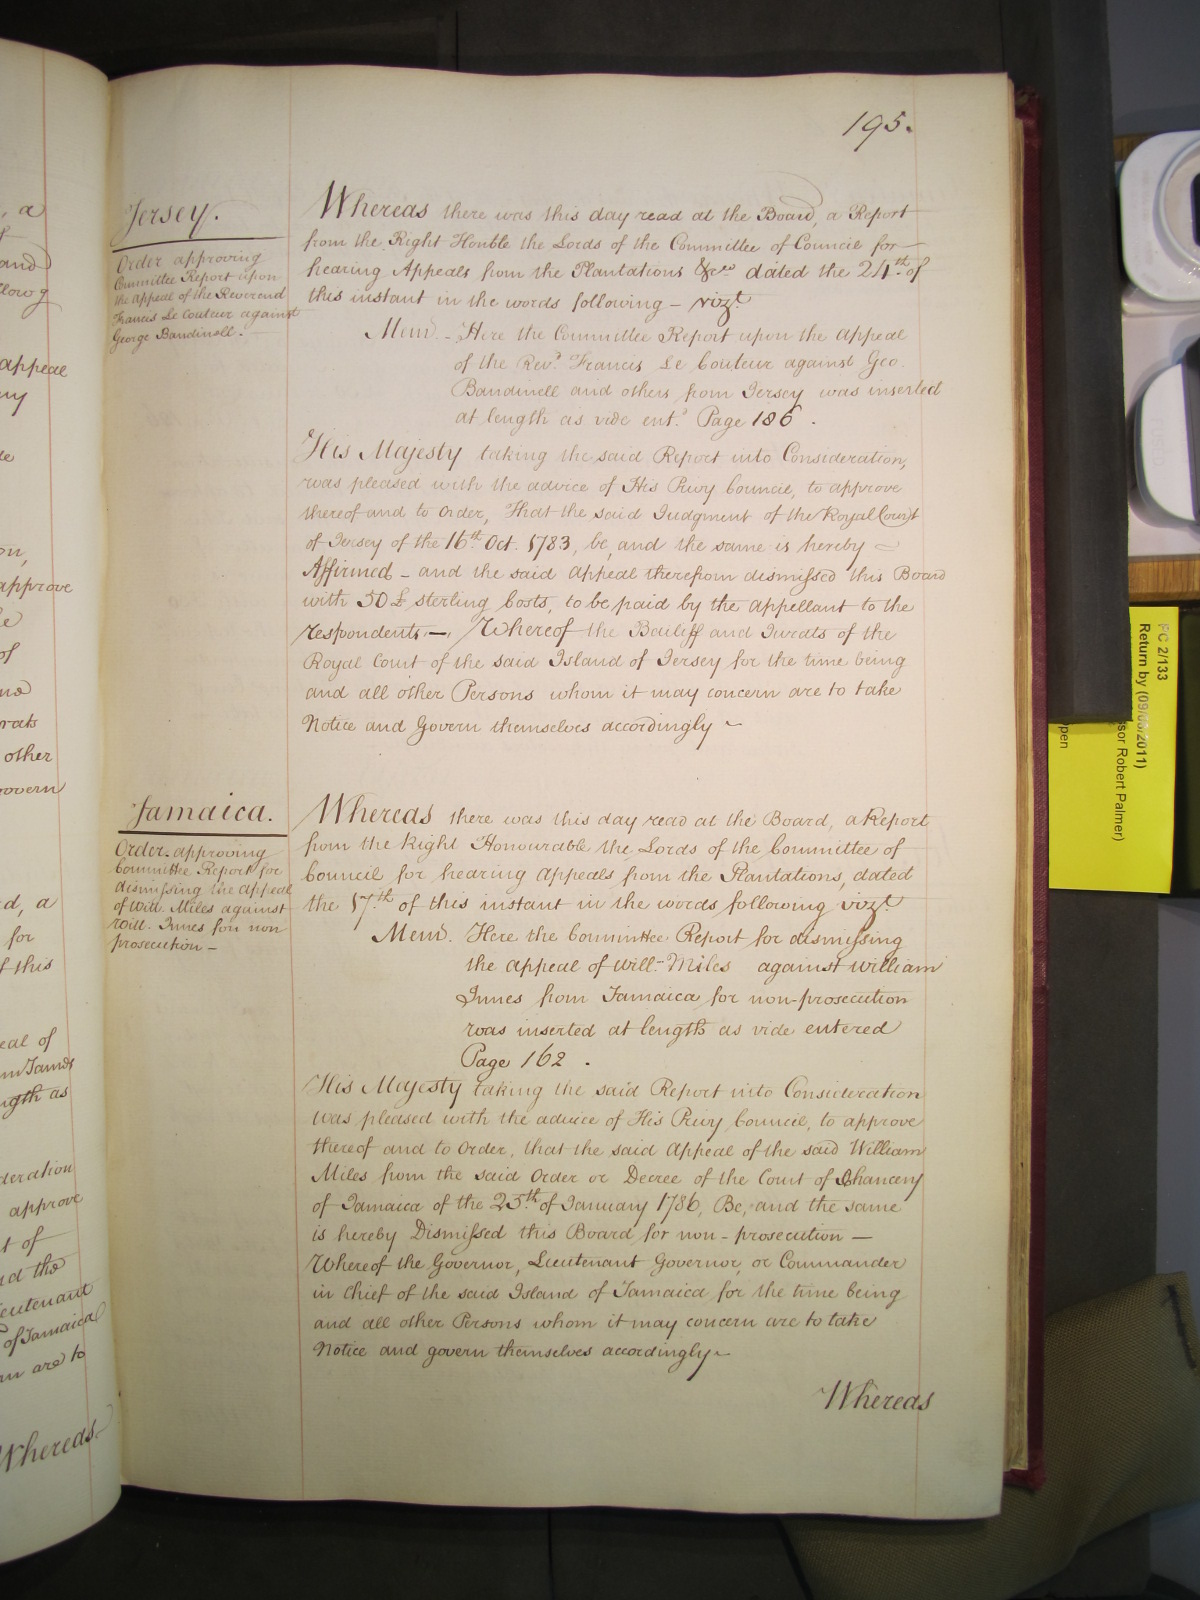 195.
Jersey.
Order approving
Committee Report upon
the Appeal of the Reverend
Francis Le Couteur against
George Bandinell.-
Whereas there was this day read at the Board, a Report
from the Right Honble the Lords of the Committee of Council for
hearing Appeals from the Plantations &ca dated the 24th of
this instant in the words following - vizt
Mem. - Here the Committee Report upon the Appeal
of the Revd Francis Le Couteur against Geo.
Bandinell and others from Jersey was inserted
at length as vide entd Page 186.
His Majesty taking the said Report into Consideration,
was pleased with the advice of His Privy Council, to approve
thereof and to Order, That the said Judgment of the Royal Court
of Jersey of the 16th Oct. 1783, be, and the same is hereby
Affirmed - and the said Appeal therefrom dismissed this Board
with 50 £ sterling Costs, to be paid by the appellant to the
respondents -, Whereof the Bailiff and Jurats of the
Royal Court of the said Island of Jersey for the time being
and all other Persons whom it may concern are to take
Notice and Govern themselves accordingly -
Jamaica.
Order approving
Committee Report for
dismissing the Appeal
of Will. Miles against
Will. Innes for non
prosecution -
Whereas there was this day read at the Board, a Report
from the Right Honourable the Lords of the Committee of
Council for hearing Appeals from the Plantations, dated
the 17th of this instant in the words following vizt
Mem. Here the Committee Report for dismissing
the Appeal of Will. Miles against William
Innes from Jamaica for non-prosecution
was inserted at length as vide entered
Page 162.
His Majesty taking the said Report into Consideration
was pleased with the advice of His Privy Council, to approve
thereof and to Order, that the said Appeal of the said William
Miles from the said Order or Decree of the Court of Chancery
of Jamaica of the 25th of January 1786, Be, and the same
is hereby Dismissed this Board for non-prosecution -
Whereof the Governor, Lieutenant Governor, or Commander
in Chief of the said Island of Jamaica for the time being
and all other Persons whom it may concern are to take
Notice and govern themselves accordingly -
Whereas
PC 2/133
Return by (09/06/2011)
sor Robert Palmer)
pen
, a
and
llowg
appeal
ny
on,
approve
of
rats
other
govern
ed, a
for
f this
eal of
m James
ngth as
deration
approve
t of
nd the
ieutenant
of Jamaica
rn are to
Whereas